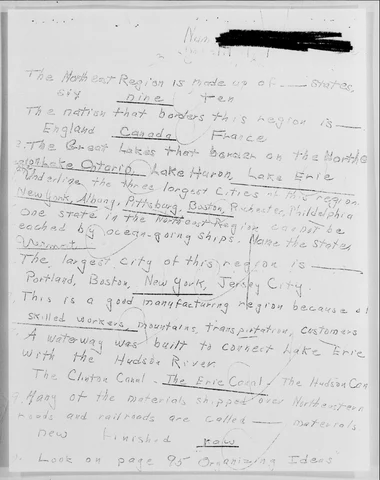 Name
The Northeast Region is made up of ___ states.
six nine ten
The nation that borders this region is ___
England Canada France
2. The Great Lakes that border on the Northe
are Lake Ontario, Lake Huron, Lake Erie
Underline the three largest cities of this region.
New York, Albany, Pittsburg, Boston, Rochester, Philadelphia
One state in the Northeast Region cannot be
eached by ocean-going ships. Name the state.
Vermont
The largest city of this region is ___
Portland, Boston, New York, Jersey City.
This is a good manufacturing region because of
skilled workers, mountains, transportation, customers
A waterway was built to connect Lake Erie
with the Hudson River.
The Clinton Canal - The Erie Canal - The Hudson Can
9. Many of the materials shipped over Northeastern
roads and railroads are called ___ materials
new finished raw
Look on page 95 "Organizing Ideas"